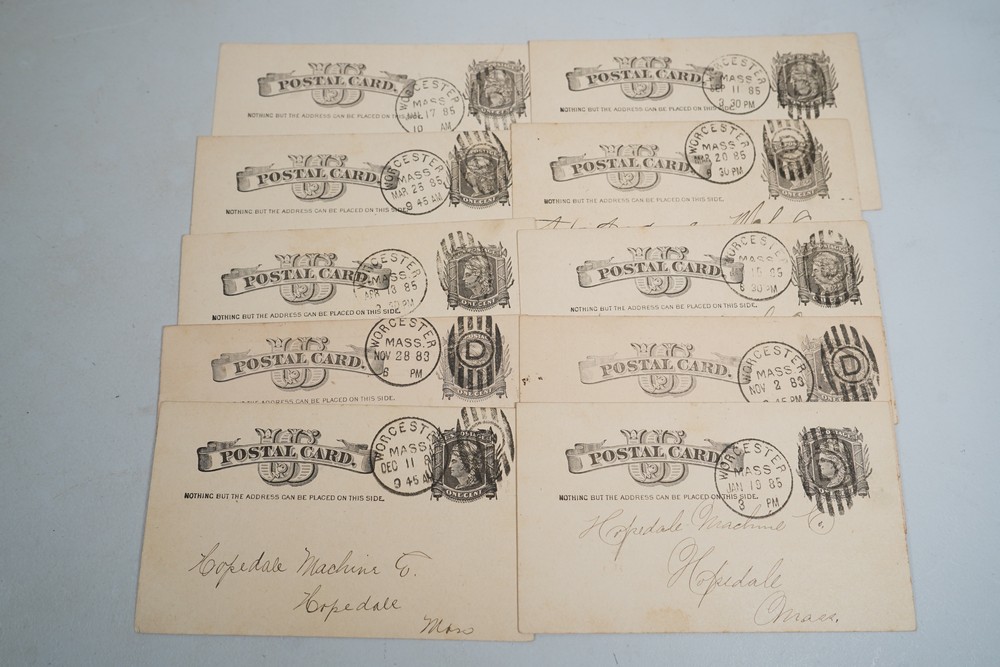 POSTAL CARD.
WORCESTER
MASS.
17 85
10 AM
NOTHING BUT THE ADDRESS CAN BE PLACED ON
POSTAL CARD.
WORCESTER
MASS.
SEP 11 85
30 PM
NOTHING BUT THE ADDRESS CAN BE PLACED ON THIS SIDE.
POSTAL CARD.
WORCESTER
MASS.
MAR 23 85
9 45 AM
ONE CENT
NOTHING BUT THE ADDRESS CAN BE PLACED ON THIS SIDE.
POSTAL CARD.
WORCESTER
MASS.
MAR 20 85
30 PM
NOTHING BUT THE ADDRESS CAN BE PLACED ON THIS SIDE.
POSTAL CARD.
WORCESTER
MASS.
APR 13 85
30 PM
ONE CENT
NOTHING BUT THE ADDRESS CAN BE PLACED ON THIS SIDE.
POSTAL CARD.
WORCESTER
MASS.
85
6 30 PM
NOTHING BUT THE ADDRESS CAN BE PLACED ON THIS SIDE.
POSTAL CARD.
WORCESTER
MASS.
NOV 28 83
6 PM
D
ONE CENT
NOTHING BUT THE ADDRESS CAN BE PLACED ON THIS SIDE.
POSTAL CARD.
WORCESTER
MASS.
NOV 2 83
45 PM
D
POSTAL CARD.
WORCESTER
MASS.
DEC 11
9 45 AM
ONE CENT
NOTHING BUT THE ADDRESS CAN BE PLACED ON THIS SIDE.
Hopedale Machine Co.
Hopedale
Mass
POSTAL CARD.
WORCESTER
MASS.
JAN 19 85
8 PM
NOTHING BUT THE ADDRESS CAN BE PLACED ON THIS SIDE.
Hopedale Machine Co.
Hopedale
Mass.